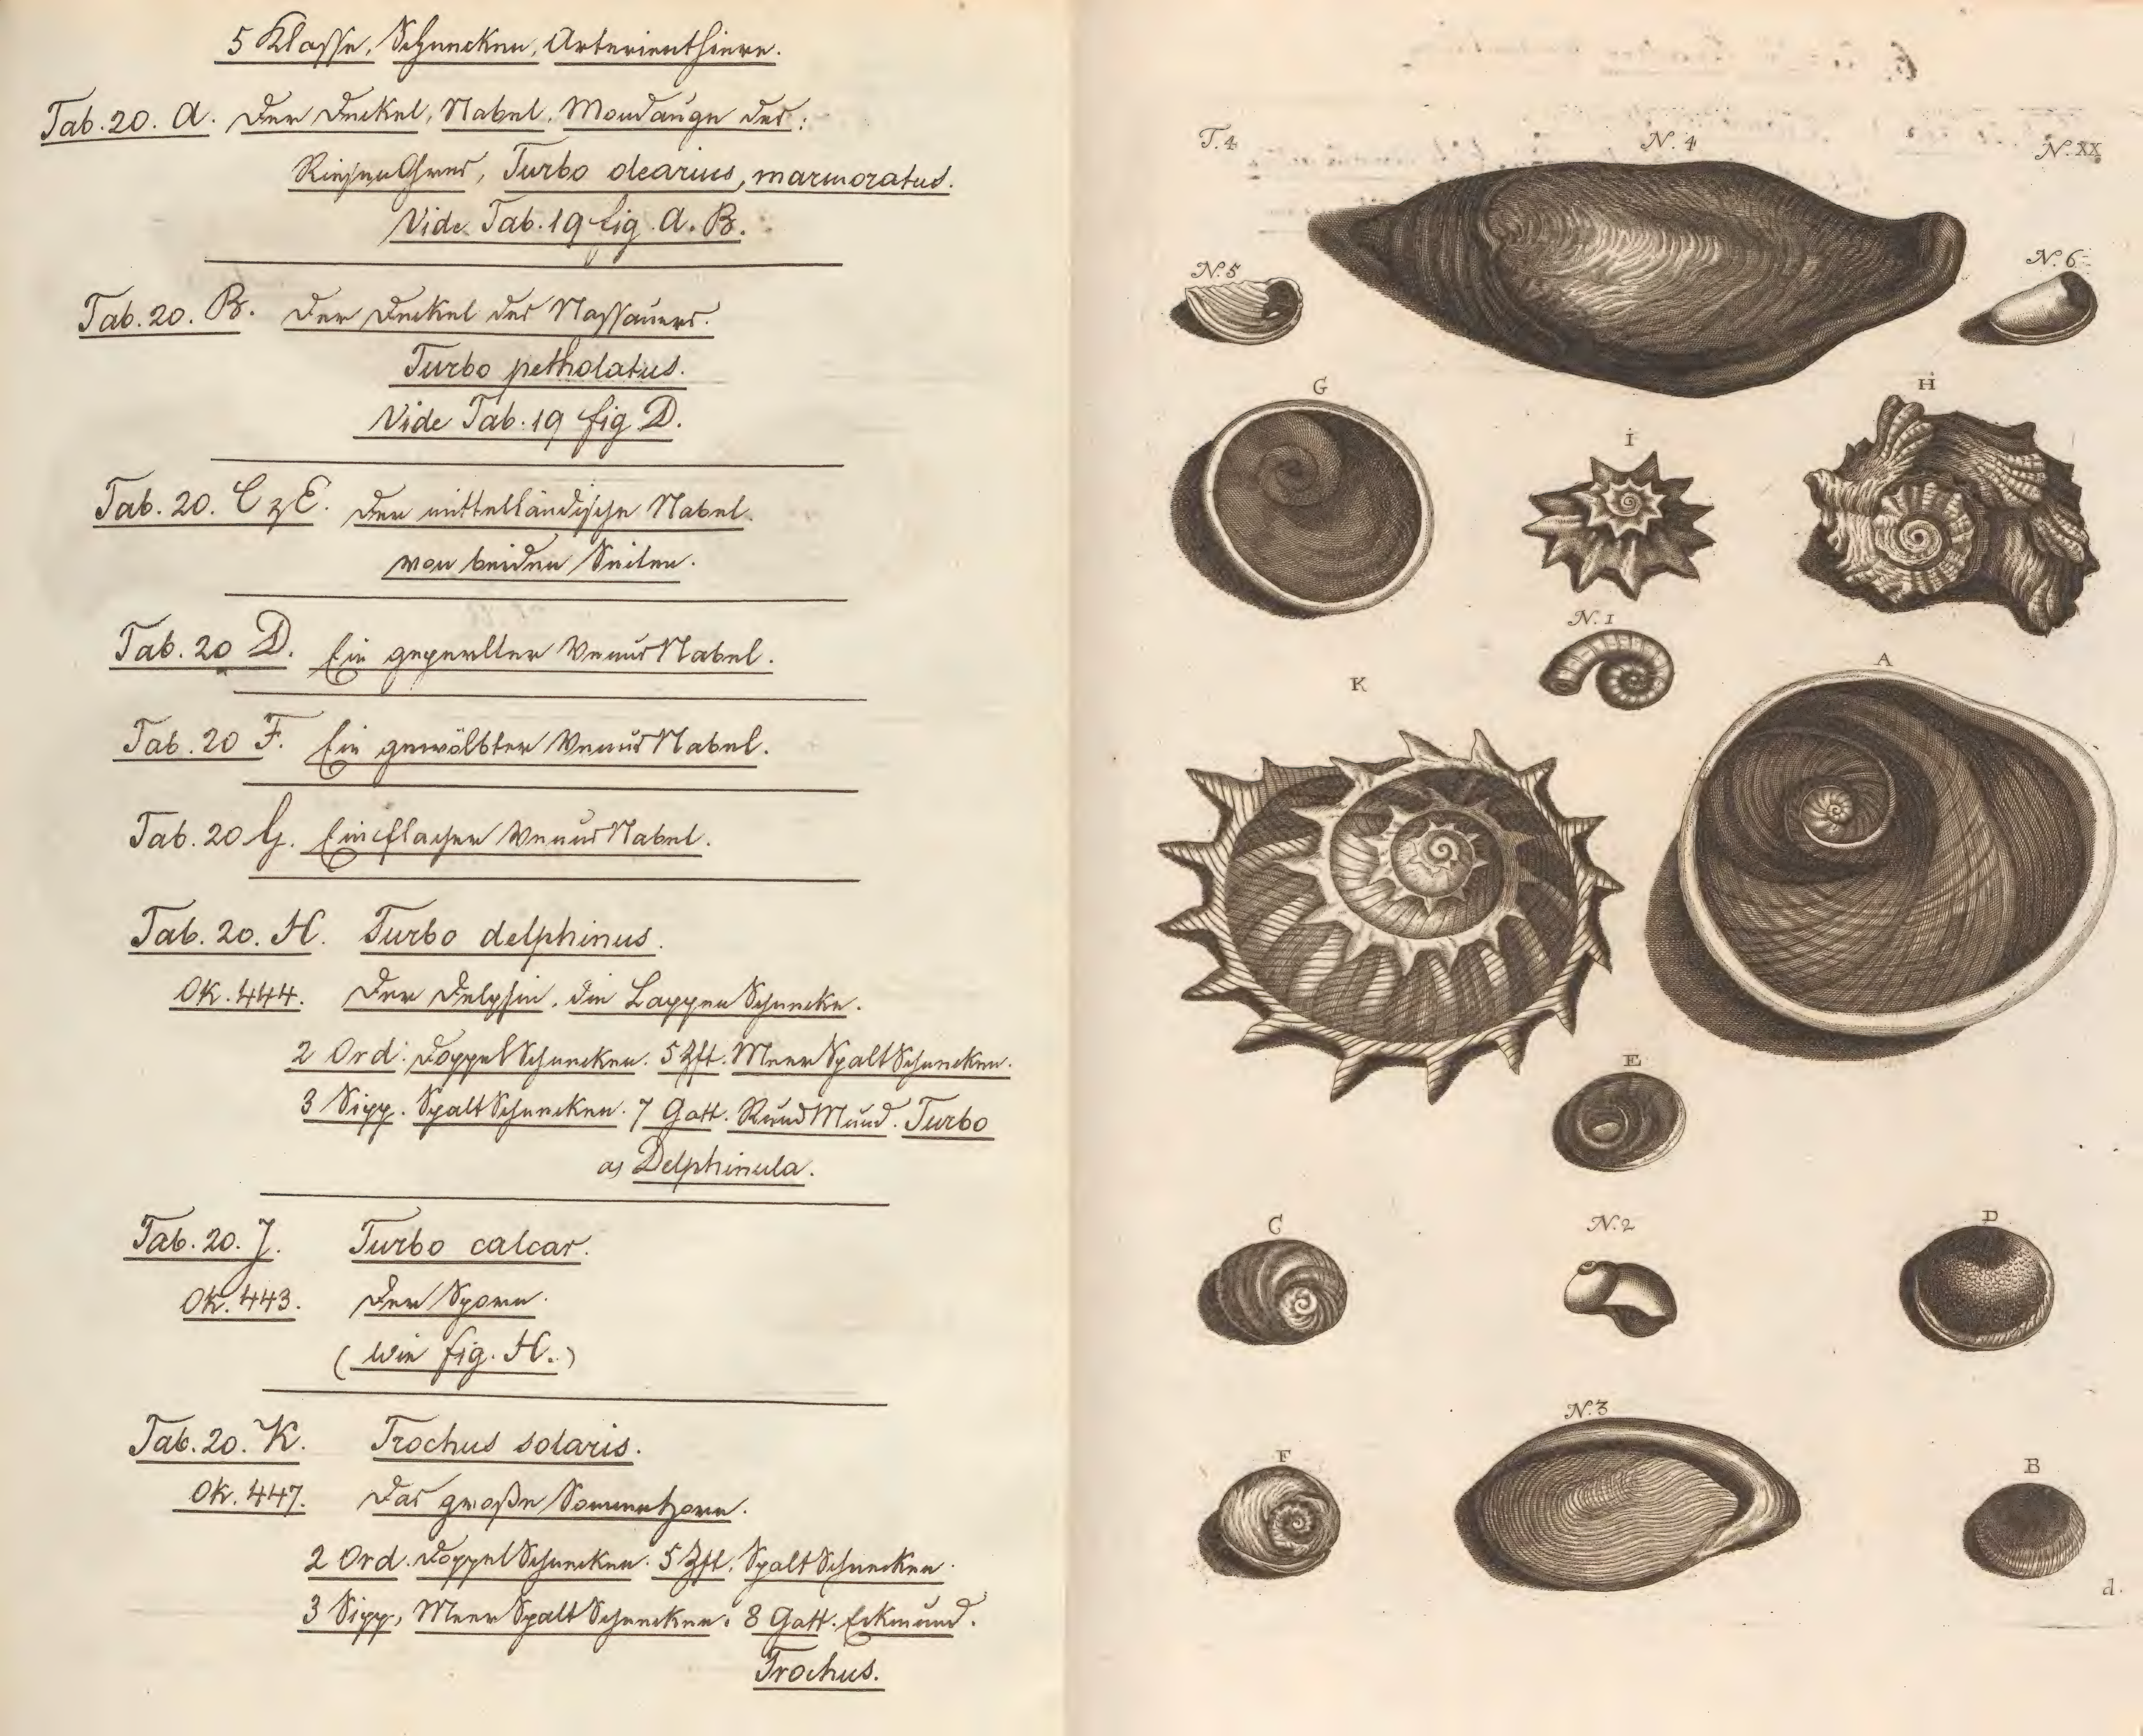 5 Klasse, Schnecken, Arterienthiere.
Tab. 20. A. Der Deckel, Nabel, Mondauge des:
RiesenOhres, Turbo olearius, marmoratus.
Vide Tab. 19 fig. A. B.
Tab. 20. B. Der Deckel des Nassauers.
Turbo petholatus.
Vide Tab. 19 fig D.
Tab. 20. C & E. Der mittelländische Nabel.
von beiden Seiten.
Tab. 20 D. Ein geperlter VenusNabel.
Tab. 20 F. Ein gewölbter VenusNabel.
Tab. 20 G. Ein flacher VenusNabel.
Tab. 20. H. Turbo delphinus.
Ok. 444. Der Delphin, die LappenSchnecke.
2 Ord: DoppelSchnecken. 5 Zft. MeerSpaltSchnecken.
3 Sipp. SpaltSchnecken. 7 Gatt. RundMund. Turbo
a, Delphinula.
Tab. 20. J. Turbo calcar.
Ok. 443. Der Sporn.
(Wie fig. H.)
Tab. 20. K. Trochus solaris.
Ok. 447. Das große Sonnenhorn.
2 Ord. DoppelSchnecken. 5 Zft. SpaltSchnecken.
3 Sipp, MeerSpaltSchnecken. 8 Gatt. Eckmund.
Trochus.
T. 4
N. 4
N. XX
N. 5
N. 6
G
I
H
N. 1
K
A
E
C
N. 2
D
N. 3
F
B
d.